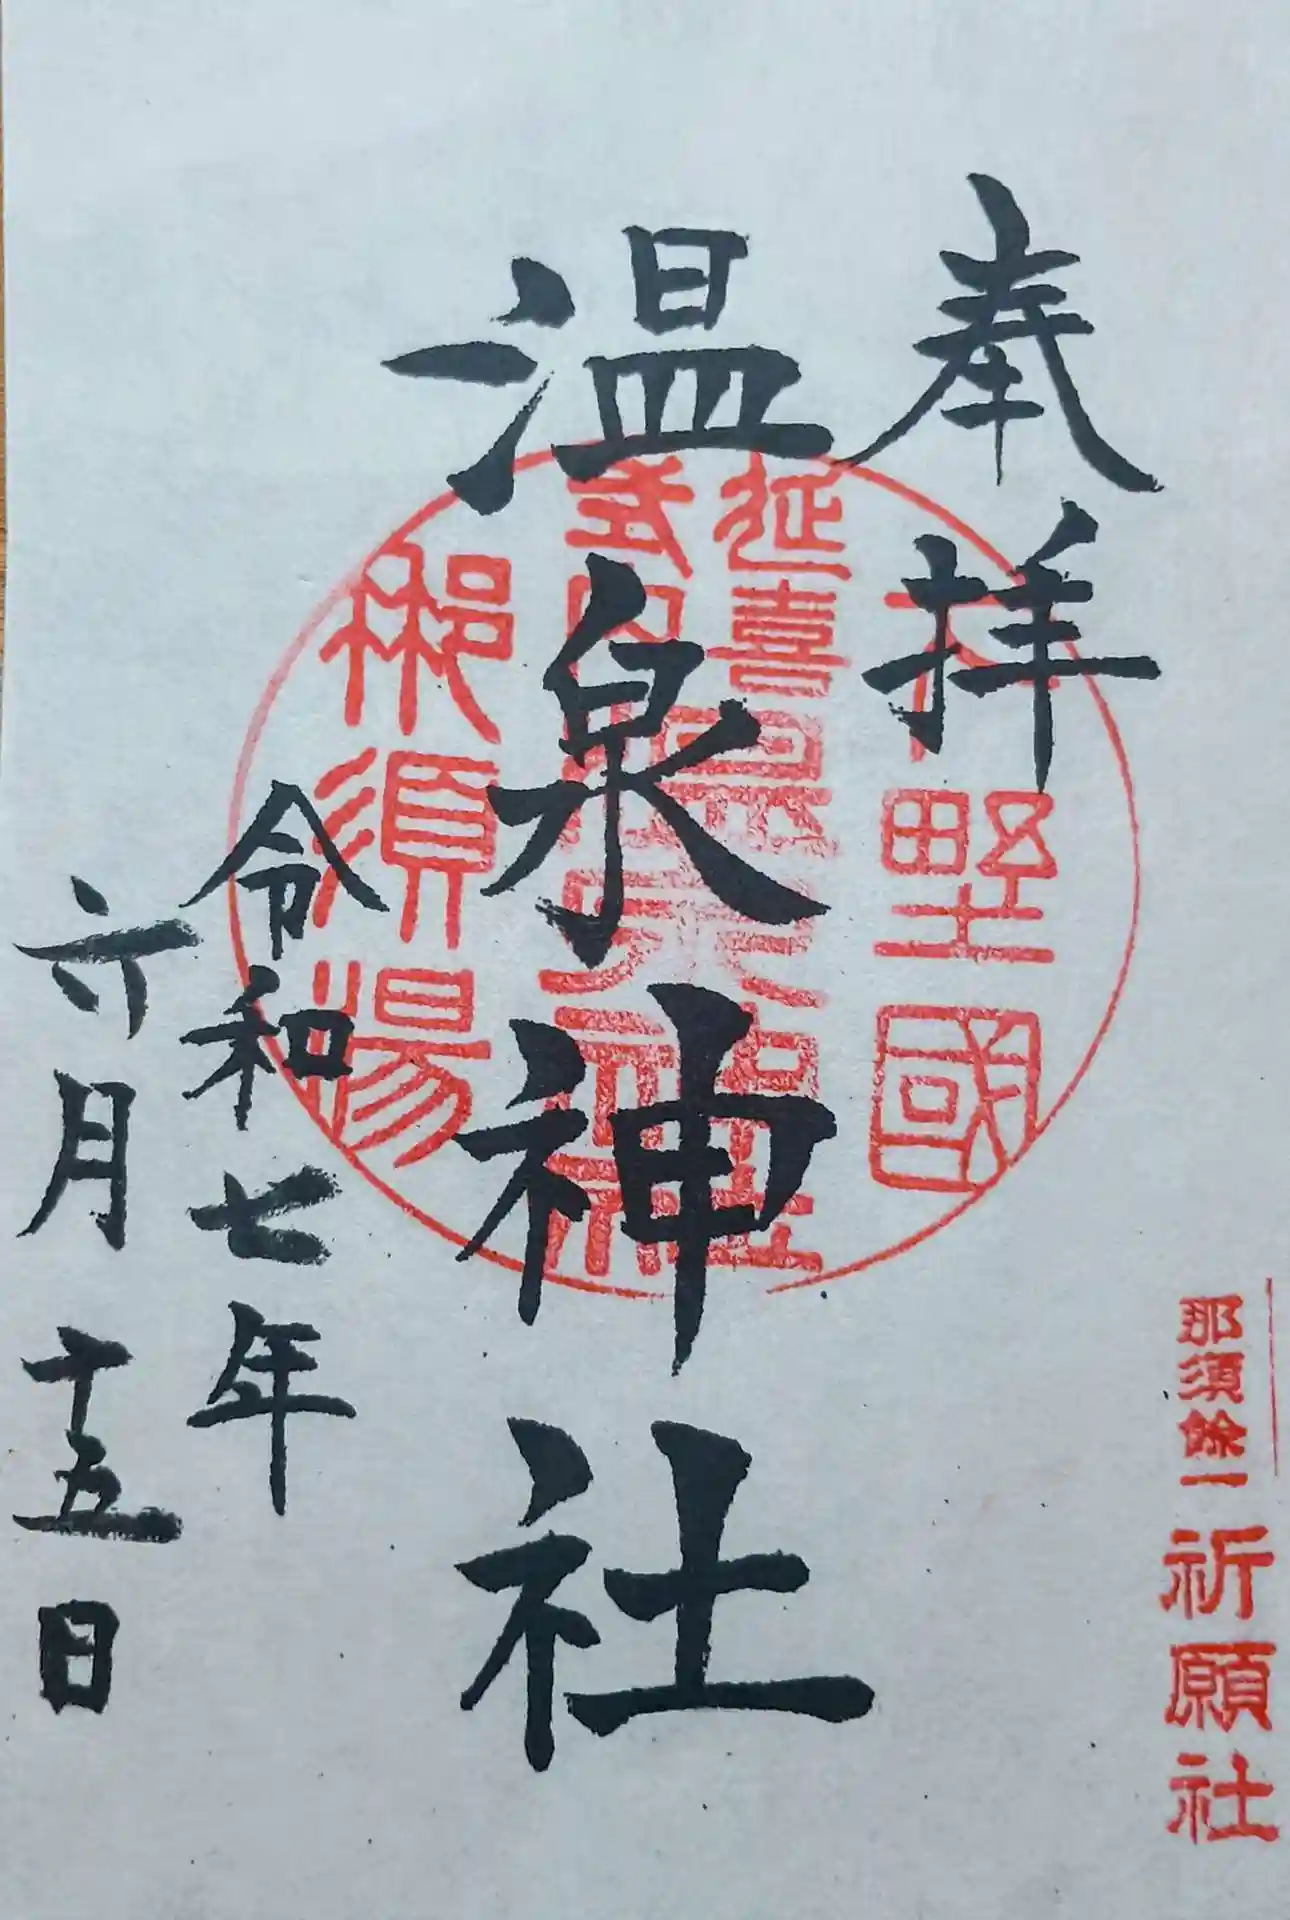 奉拝
温泉神社
令和七年
六月十五日
下野國
延喜
式内
温泉神社
那須湯
那須餘一
祈願社